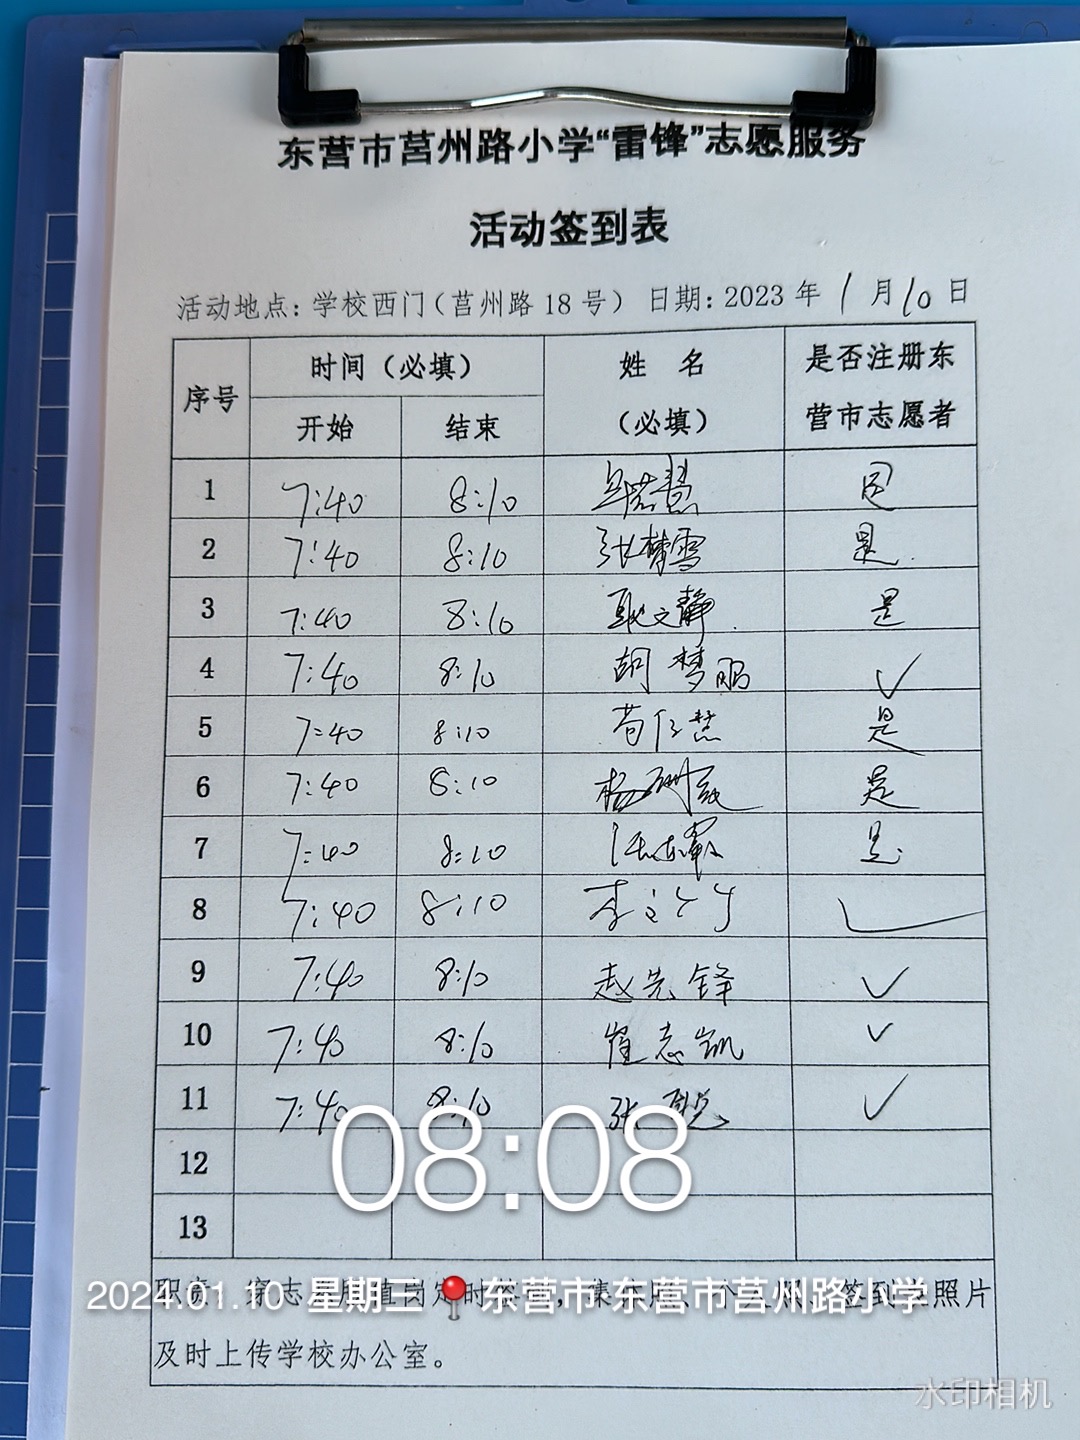 东营市莒州路小学“雷锋”志愿服务
活动签到表
活动地点：学校西门（莒州路 18 号） 日期：2023 年 1 月 10 日
序号 时间（必填） 姓 名（必填） 是否注册东营市志愿者
开始 结束
1 7:40 8:10
2 7:40 8:10 张梦雪 是
3 7:40 8:10 耿文静 是
4 7:40 8:10 胡梦鹏 ✓
5 7:40 8:10 是
6 7:40 8:10 是
7 7:40 8:10 是
8 7:40 8:10 ✓
9 7:40 8:10 赵先锋 ✓
10 7:40 8:10 崔志凯 ✓
11 7:40 8:10 张 ✓
12
13
08:08
2024.01.10 星期三 东营市·东营市莒州路小学
照片
及时上传学校办公室。
水印相机